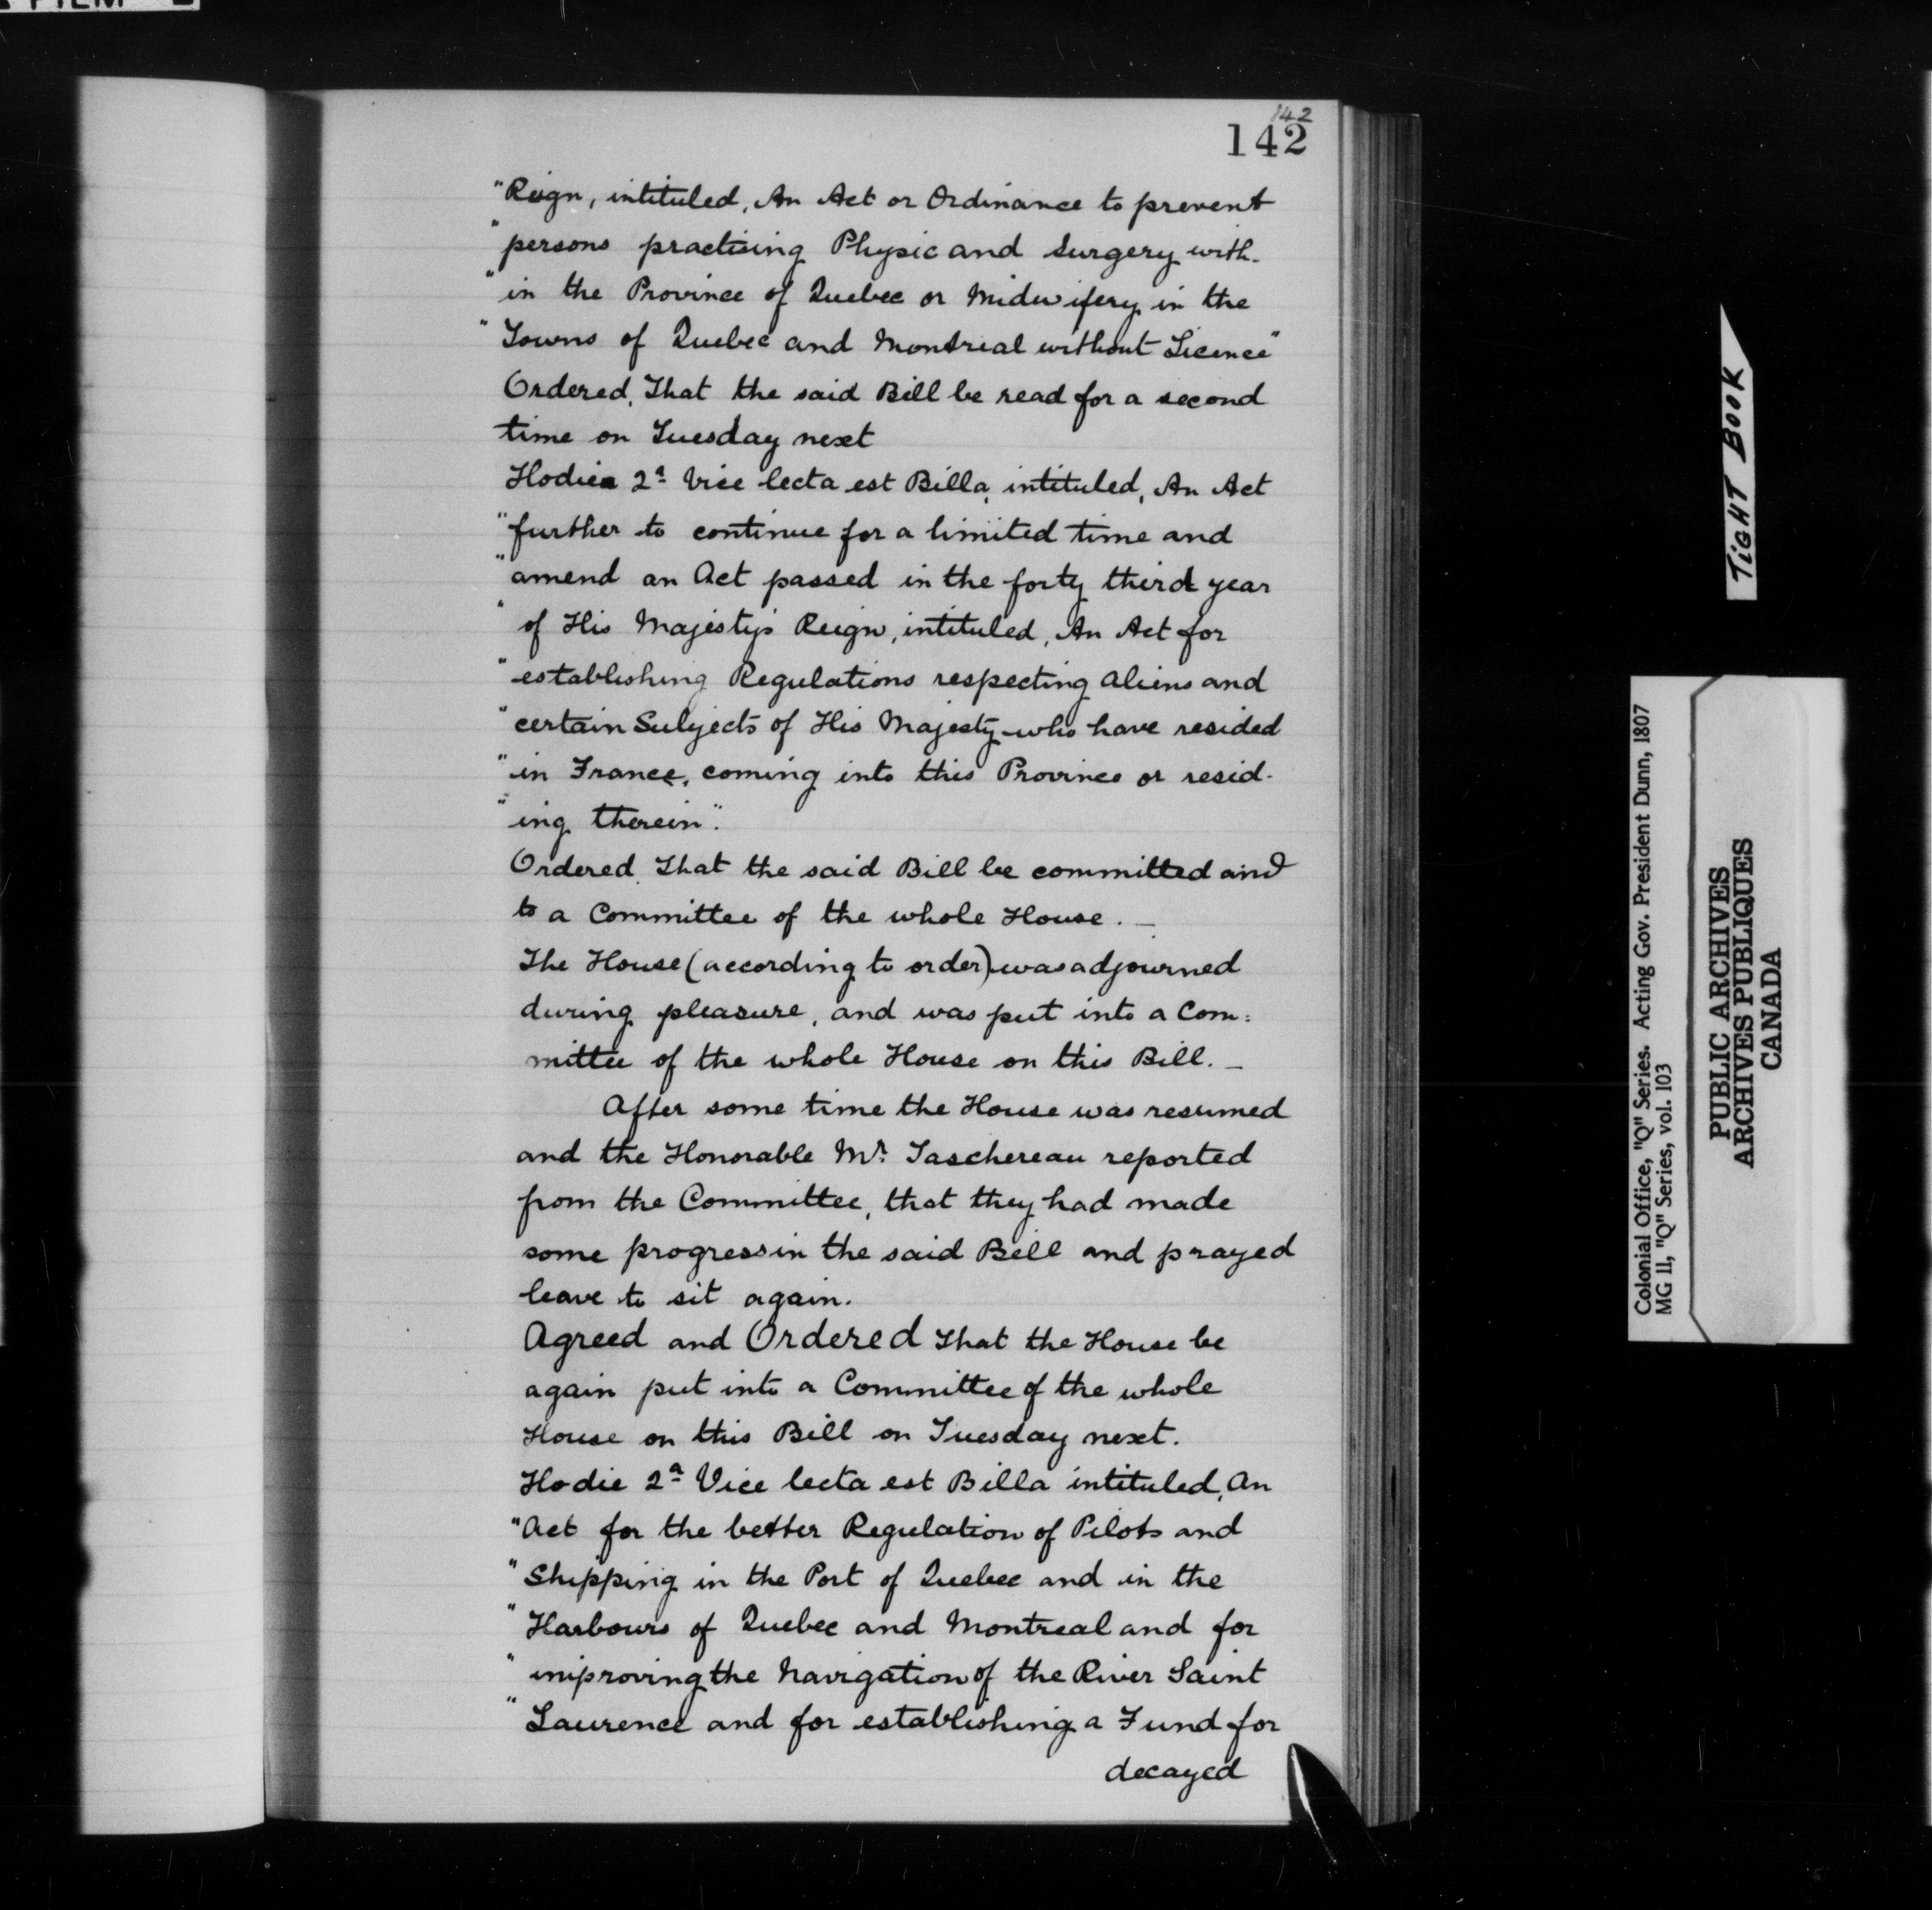 142
142
"Reign, intituled, An Act or Ordinance to prevent
"persons practising Physic and Surgery with-
"in the Province of Quebec or Midwifery in the
"Towns of Quebec and Montreal without Licence"
Ordered, That the said Bill be read for a second
time on Tuesday next
Hodie 2ª Vice lecta est Billa, intituled, An Act
"further to continue for a limited time and
"amend an Act passed in the forty third year
"of His Majesty's Reign, intituled, An Act for
"establishing Regulations respecting Aliens and
"certain Subjects of His Majesty who have resided
"in France, coming into this Province or resid-
"ing therein".
Ordered That the said Bill be committed and
to a Committee of the whole House. —
The House (according to order) was adjourned
during pleasure, and was put into a Com:
mittee of the whole House on this Bill. —
After some time the House was resumed
and the Honorable Mr. Taschereau reported
from the Committee, that they had made
some progress in the said Bill and prayed
leave to sit again.
Agreed and Ordered That the House be
again put into a Committee of the whole
House on this Bill on Tuesday next.
Hodie 2ª Vice lecta est Billa intituled, An
"Act for the better Regulation of Pilots and
"Shipping in the Port of Quebec and in the
"Harbours of Quebec and Montreal and for
"improving the Navigation of the River Saint
"Laurence and for establishing a Fund for
decayed
TIGHT BOOK
Colonial Office, "Q" Series. Acting Gov. President Dunn, 1807
MG 11, "Q" Series, vol. 103
PUBLIC ARCHIVES
ARCHIVES PUBLIQUES
CANADA